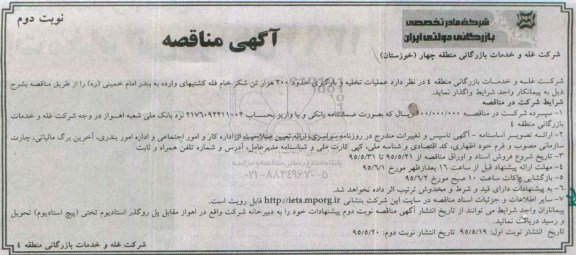 نوبت دوم
آگهی مناقصه
شرکت مادر تخصصی
بازرگانی دولتی ایران
شرکت غله و خدمات بازرگانی منطقه چهار (خوزستان)
شرکت غله و خدمات بازرگانی منطقه ۴ در نظر دارد عملیات تخلیه و بارگیری حدود ۲۰۰ هزار تن شکر خام فله کشتیهای وارده به بندر امام خمینی (ره) را از طریق مناقصه بشرح
ذیل به پیمانکار واجد شرایط واگذار نماید.
شرایط شرکت در مناقصه
۱- سپرده شرکت در مناقصه ریال که بصورت ضمانتنامه بانکی و یا واریز بحساب نزد بانک ملی شعبه اهواز در وجه شرکت غله و خدمات
بازرگانی منطقه ۴
۲- ارائه تصویر اساسنامه - آگهی تاسیس و تغییرات مندرج در روزنامه صلاحیت از اداره کار و امور اجتماعی و اداره امور بندری، آخرین برگ مالیاتی، چارت
سازمانی مصوب و فرم خود اظهاری، کد اقتصادی و شناسه ملی، کپی کارت ملی و شناسنامه مدیرعامل، آدرس و شماره تلفن همراه و ثابت
۳- تاریخ شروع فروش اسناد و اوراق مناقصه از ۹۵/۵/۲۱ تا ۹۵/۵/۳۱
۴- مهلت ارائه پیشنهاد قبل از ساعت ۱۶ بعدازظهر مورخ ۹۵/۶/۱
۵- بازگشایی پاکات ساعت ۱۰ صبح مورخ ۹۵/۶/۲
۶- به پیشنهادات دارای قید و شرط و مخدوش ترتیب اثر داده نخواهد شد.
۷- سایر اطلاعات و جزئیات اسناد مناقصه در سایت این شرکت بنشانی http://iets.mporg.ir قابل رویت است.
پیمانکاران واجد شرایط می توانند از تاریخ انتشار آگهی مناقصه نوبت دوم پیشنهادات خود را به دبیرخانه شرکت واقع در اهواز مقابل پل روگذر استادیوم تختی (پیچ استادیوم) تحویل
و رسید دریافت نمائید.
تاریخ انتشار نوبت اول: ۹۵/۵/۱۹ تاریخ انتشار نوبت دوم: ۹۵/۵/۲۰
شرکت غله و خدمات بازرگانی منطقه ۴